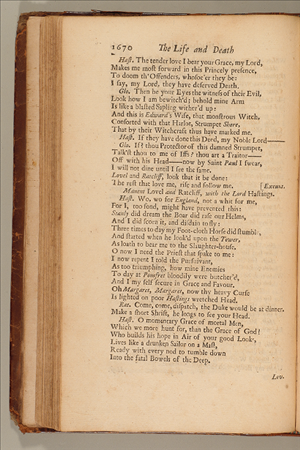 1670 The Life and Death
Hast. The tender love I bear your Grace, my Lord,
Makes me most forward in this Princely presence,
To doom th'Offenders, whosoe'er they be:
I say, my Lord, they have deserved Death.
Glo. Then be your Eyes the witness of their Evil,
Look how I am bewitch'd; behold mine Arm
Is like a blasted Sapling wither'd up:
And this is Edward's Wife, that monstrous Witch,
Consorted with that Harlot, Strumpet Shore,
That by their Witchcraft thus have marked me.
Hast. If they have done this Deed, my Noble Lord——
Glo. If? thou Protector of this damned Strumpet,
Talk'st thou to me of Iffs? thou art a Traitor——
Off with his Head——now by Saint Paul I swear,
I will not dine until I see the same.
Lovel and Ratcliff, look that it be done:
The rest that love me, rise and follow me. [Exeunt.
Manent Lovel and Ratcliff, with the Lord Hastings.
Hast. Wo, wo for England, not a whit for me,
For I, too fond, might have prevented this:
Stanly did dream the Boar did rase our Helms,
And I did scorn it, and disdain to fly:
Three times to day my Foot-cloth Horse did stumble,
And started when he look'd upon the Tower,
As loath to bear me to the Slaughter-house.
O now I need the Priest that spake to me:
I now repent I told the Pursuivant,
As too triumphing, how mine Enemies
To day at Pomfret bloodily were butcher'd,
And I my self secure in Grace and Favour.
Oh Margaret, Margaret, now thy heavy Curse
Is lighted on poor Hastings wretched Head.
Rat. Come, come, dispatch, the Duke would be at dinner.
Make a short Shrift, he longs to see your Head.
Hast. O momentary Grace of mortal Men,
Which we more hunt for, than the Grace of God!
Who builds his hope in Air of your good Looks,
Lives like a drunken Sailor on a Mast,
Ready with every nod to tumble down
Into the fatal Bowels of the Deep.
Lov.